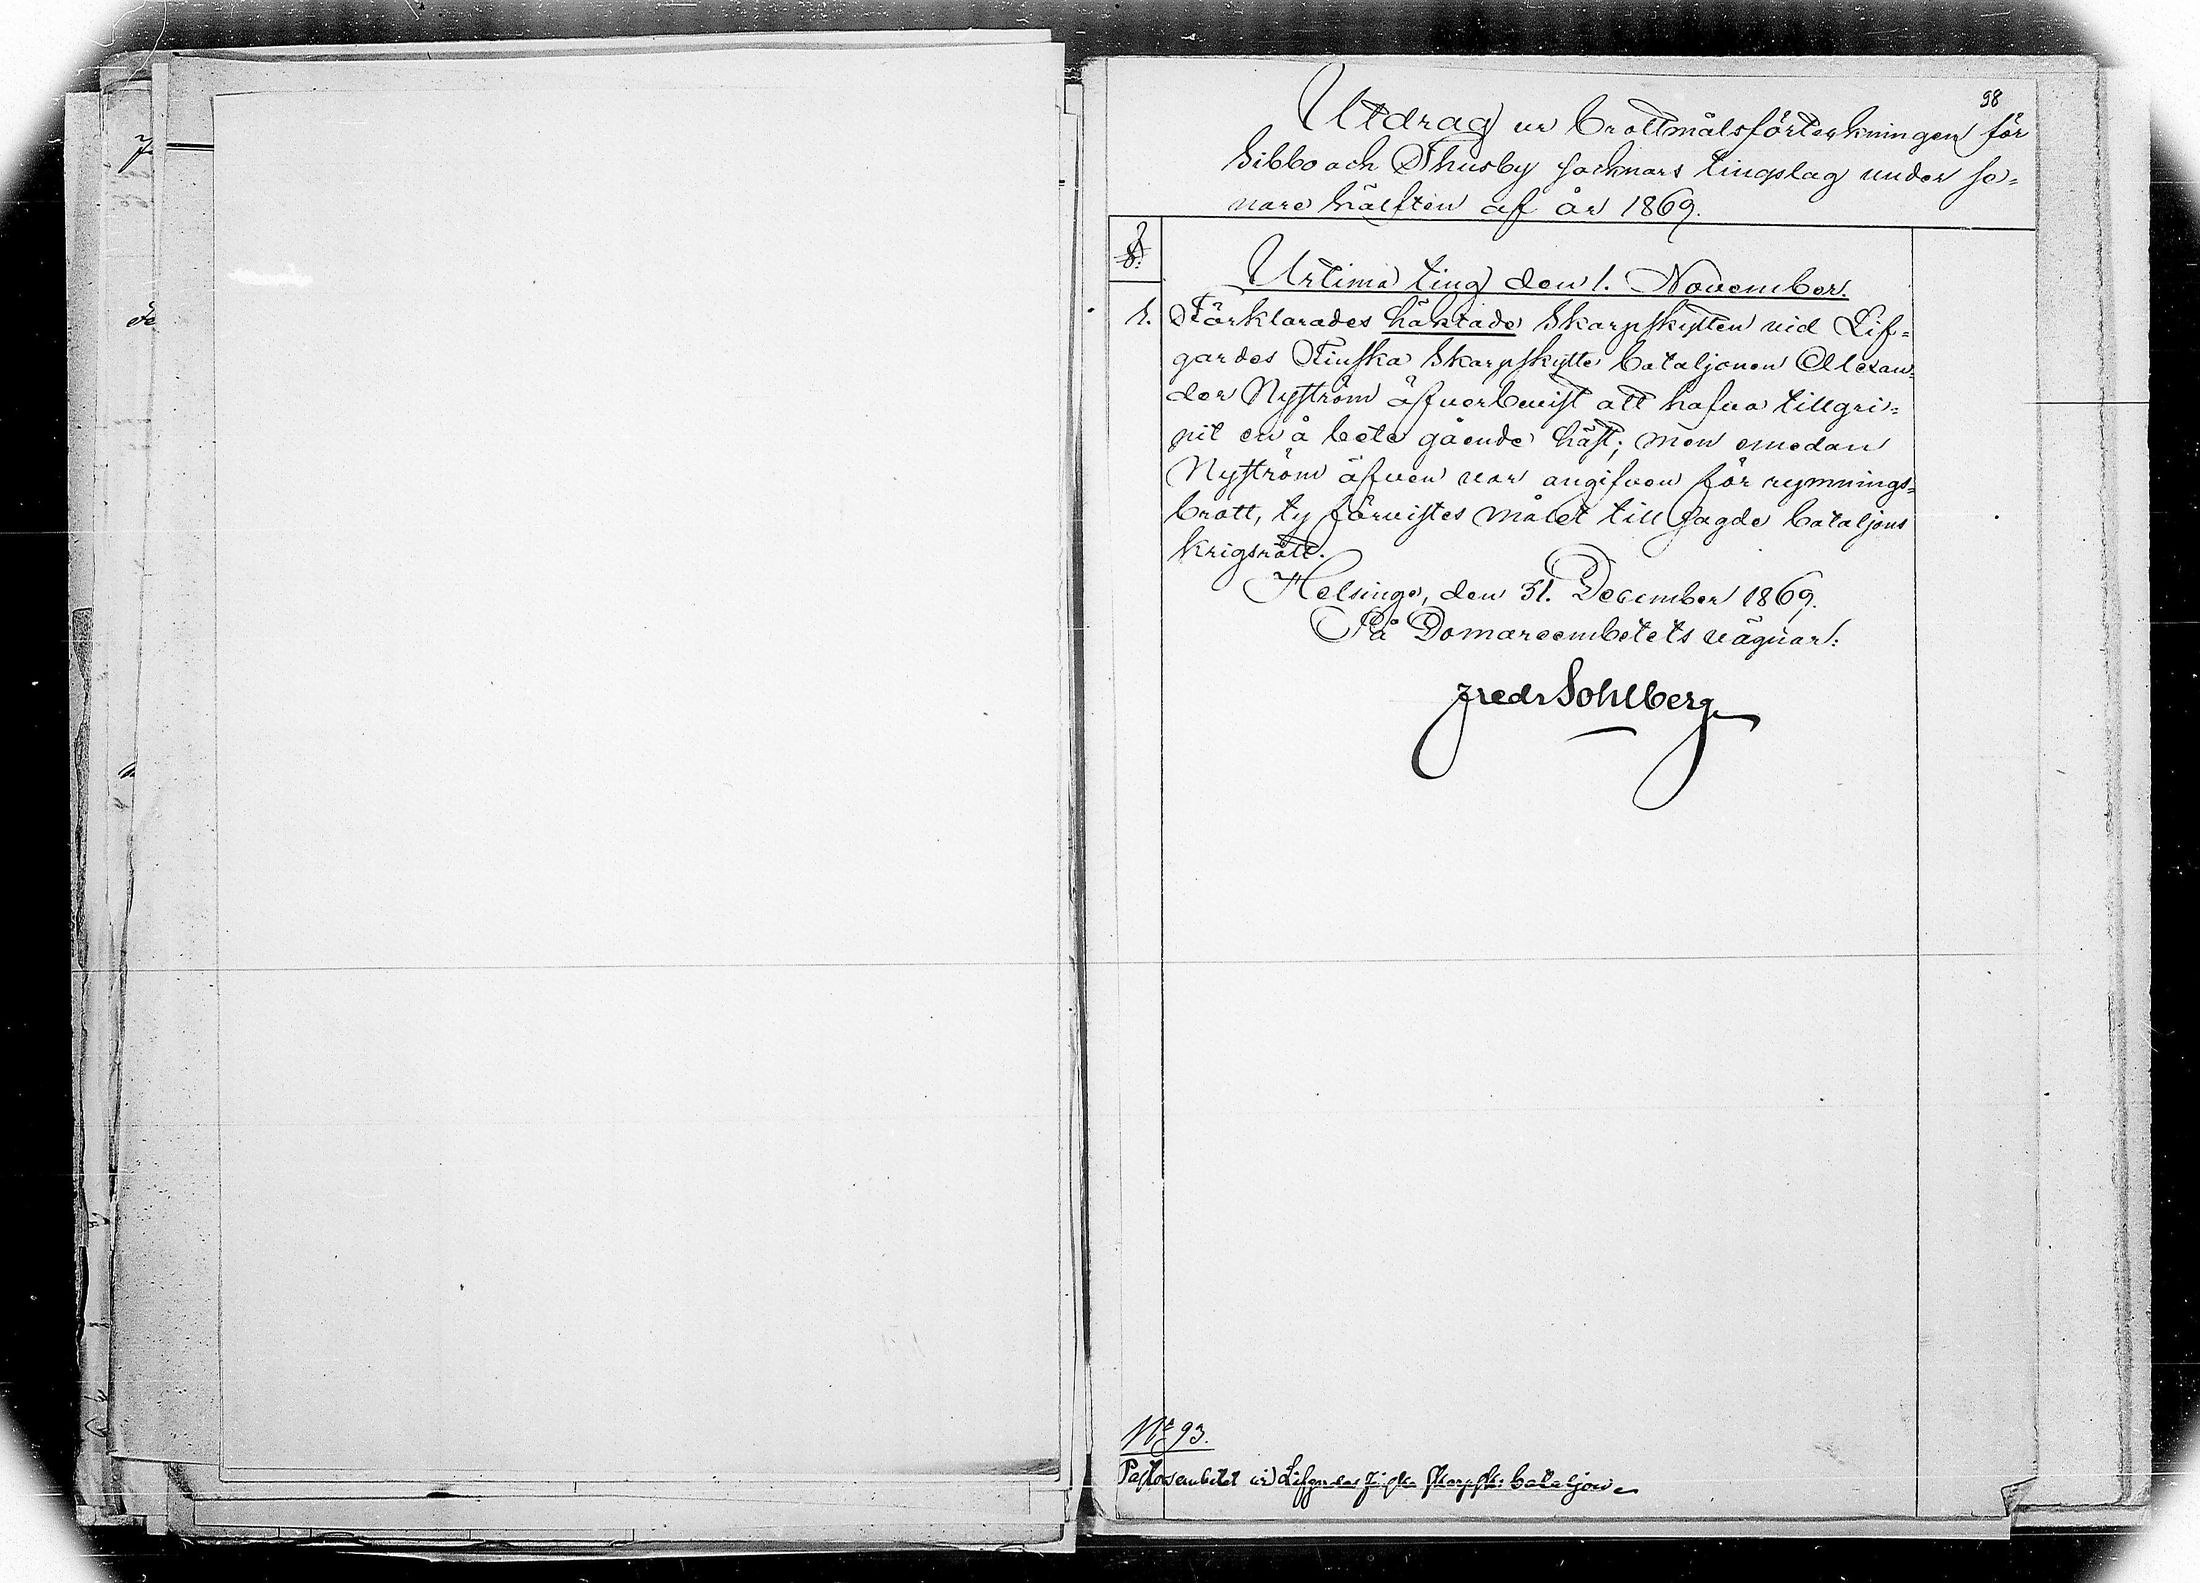 98
Utdrag ur Brottmålsförteckningen för
Sibbo och Thusby socknars tingslag under se=
nare hälften af år 1869.
§.
Urtima ting den 1. November.
1. Förklarades häktade Skarpskytten vid Lif=
gardes Finska Skarpskytte bataljonen Alexan=
der Nyström öfverbevist att hafva tillgri=
pit en å bete gående häst; men emedan
Nyström äfven var angifven för rymnings=
brott, ty förvistes målet till sagde bataljons
krigsrätt.
Helsinge, den 31. December 1869.
På Domareembetets vägnar:
Fredr Sohlberg
No 93.
Pastorsembetet vid Lifgardes Finska Skarpsk: bataljon